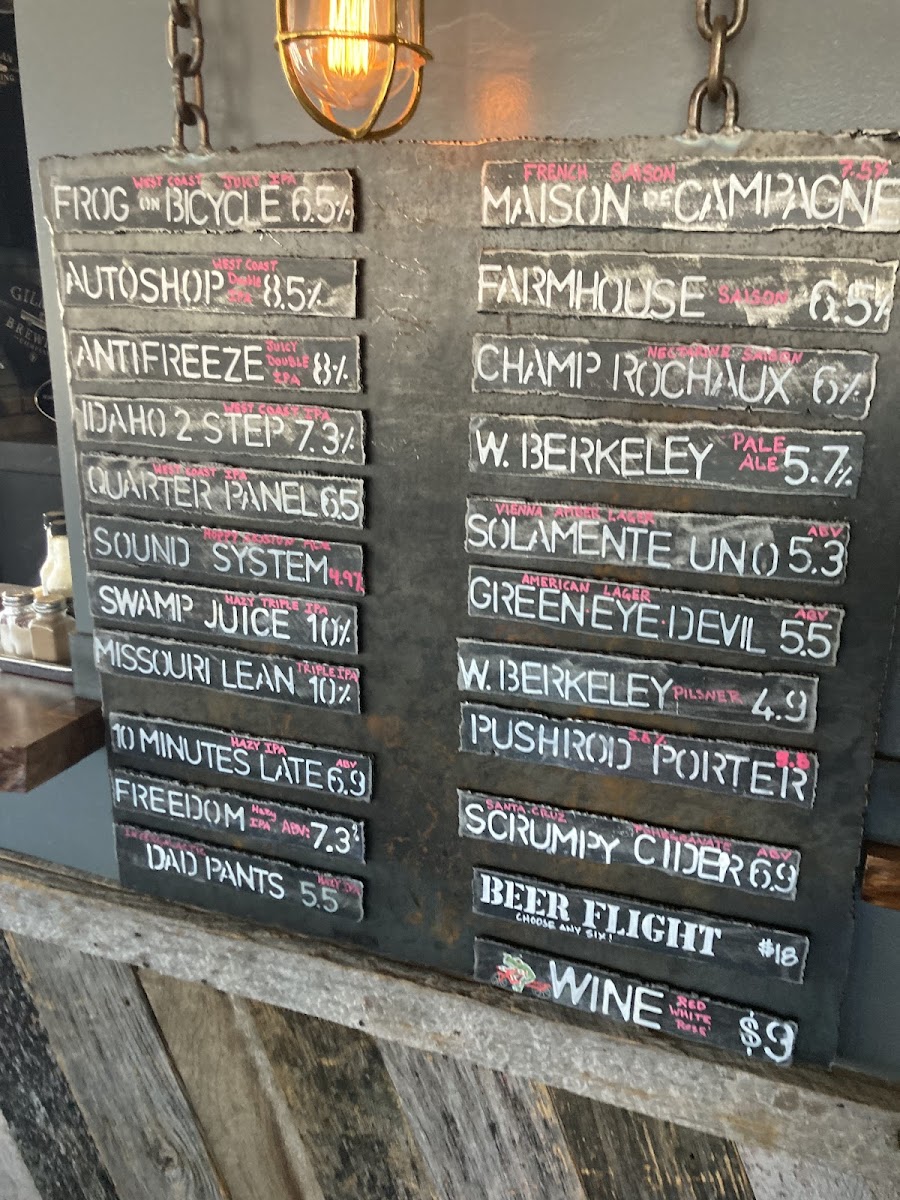 WEST COAST JUICY IPA
FROG ON BICYCLE 6.5%
AUTOSHOP WEST COAST Double IPA 8.5%
ANTIFREEZE JUICY DOUBLE IPA 8%
WEST COAST IPA
IDAHO 2 STEP 7.3%
WEST COAST IPA
QUARTER PANEL 6.5
HOPPY SESSION ALE
SOUND SYSTEM 4.9%
HAZY TRIPLE IPA
SWAMP JUICE 10%
MISSOURI LEAN TRIPLE IPA 10%
HAZY IPA
10 MINUTES LATE ABV 6.9
FREEDOM Hazy IPA ABV: 7.3%
DAD PANTS HAZY IPA 5.5
FRENCH SAISON 7.5%
MAISON DE CAMPAGNE
FARMHOUSE SAISON 6.5%
NECTARINE SAISON
CHAMP ROCHAUX 6%
W. BERKELEY PALE ALE 5.7%
VIENNA AMBER LAGER
SOLAMENTE UNO ABV 5.3
AMERICAN LAGER
GREEN·EYE·DEVIL ABV 5.5
W. BERKELEY PILSNER 4.9
5.8%
PUSHROD PORTER 5.8
SANTA CRUZ POMEGRANATE
SCRUMPY CIDER ABV 6.9
BEER FLIGHT $18
CHOOSE ANY SIX!
WINE RED WHITE ROSE' $9